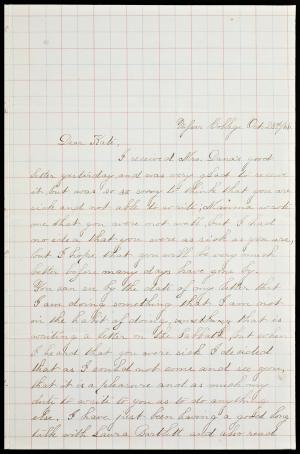 College Oct. 28th/
Dear Kate,
I received Mrs. Dana's good
letter yesterday and was very glad to receive
it, but was so so sorry to think that you are
sick and not able to write; wrote
me that you were not well, but I had
no idea that you were as sick as you are,
but I hope that you will be very much
better before many days have gone by.
You can see by the date of my letter that
I am doing something that I am not
in the habit of doing, anything that is
writing a letter on the Sabbath, but when
I heard that you were sick I decided
that as I could not come and see you,
that it is a pleasure and as much my
duty to write to you as to do anything
else. I have just been having a good long
talk with Laura Bartlett and who read